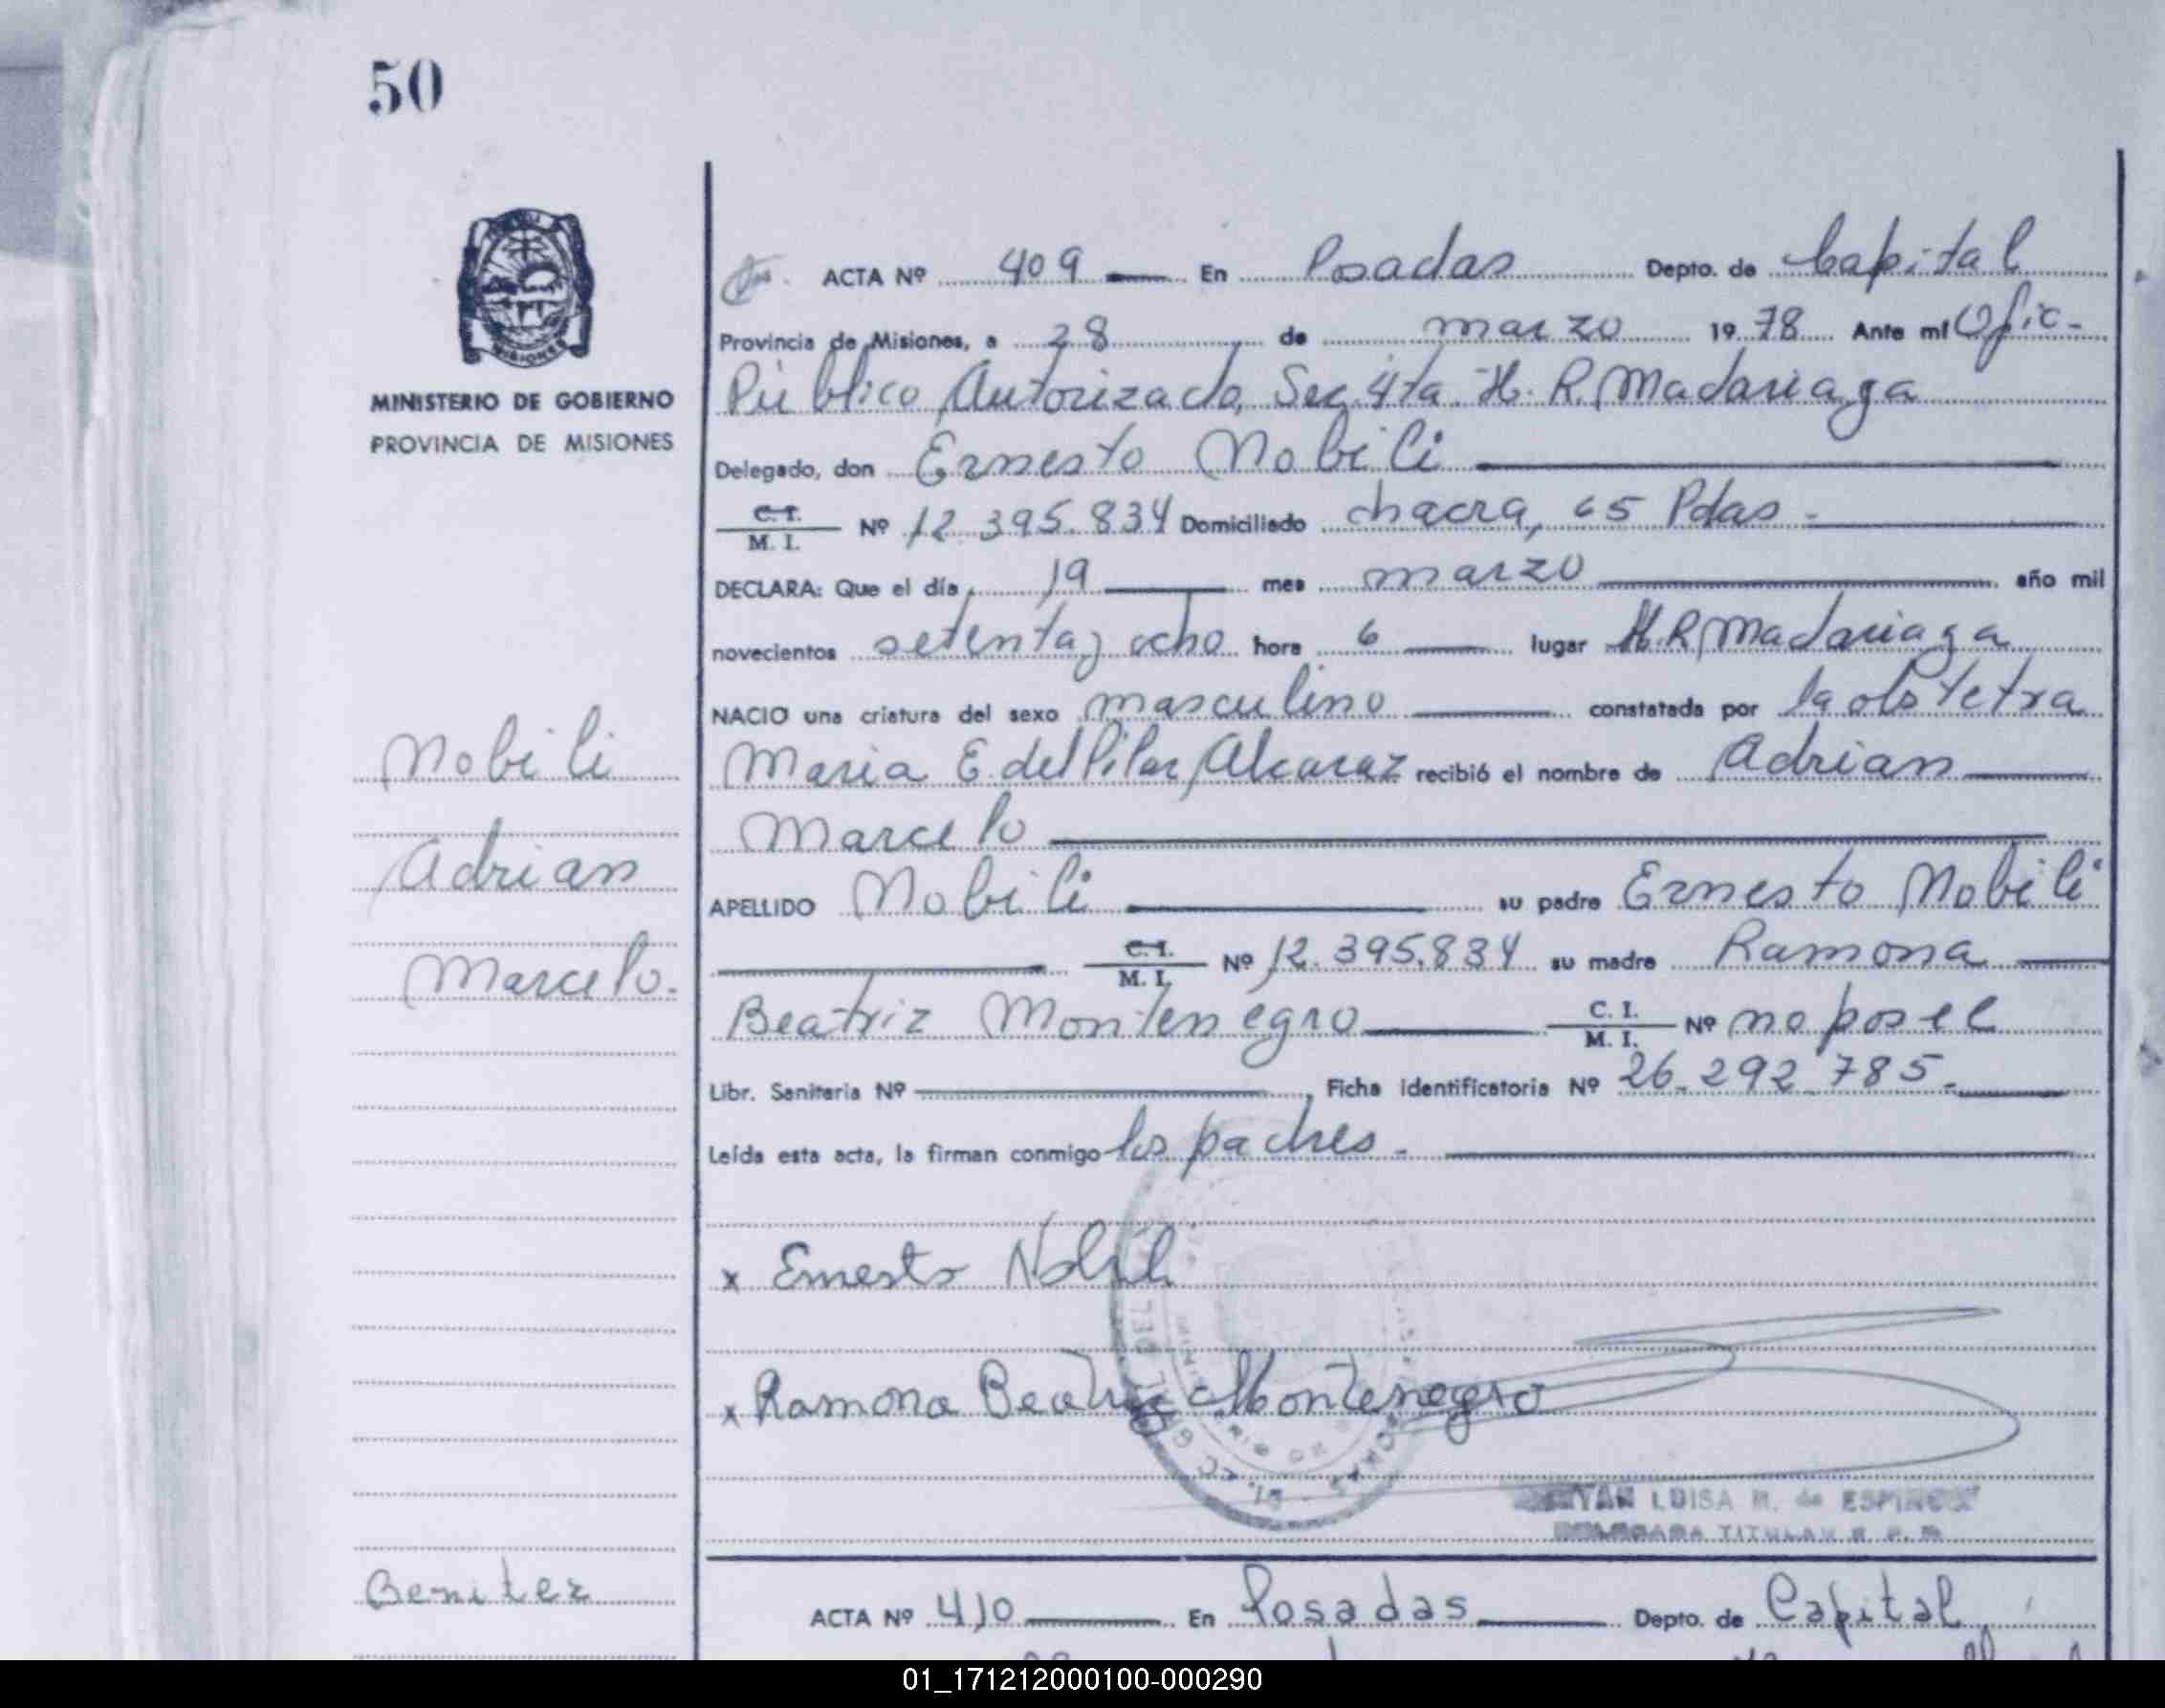 50
MISIONES
MINISTERIO DE GOBIERNO
PROVINCIA DE MISIONES
Nobili
Adrian
Marcelo.
ACTA Nº 409 En Posadas Depto. de Capital
Provincia de Misiones, a 28 de marzo 1978 Ante mí Ofic-
Público Autorizado, Sec 4ta. H. R. Madariaga
Delegado, don Ernesto Nobili
C.I. M. I. Nº 12.395.834 Domiciliado chacra, 65 Pdas -
DECLARA: Que el día 19 mes marzo año mil
novecientos setenta y ocho hora 6 lugar H.R Madariaga
NACIO una criatura del sexo masculino constatada por la obstetra
Maria E. del Pilar Alcaraz recibió el nombre de Adrian
Marcelo
APELLIDO Nobili su padre Ernesto Nobili
C.I. M. I. Nº 12.395.834 su madre Ramona
Beatriz Montenegro C. I. M. I. Nº no posee
Libr. Sanitaria Nº , Ficha identificatoria Nº 26.292.785.-
Leída esta acta, la firman conmigo los padres -
x Ernesto Nobili
x Ramona Beatriz Montenegro
LUISA M. de ESPINOZA
TITULAR R. P.
Benitez
ACTA Nº 410 En Posadas Depto. de Capital
01_171212000100-000290